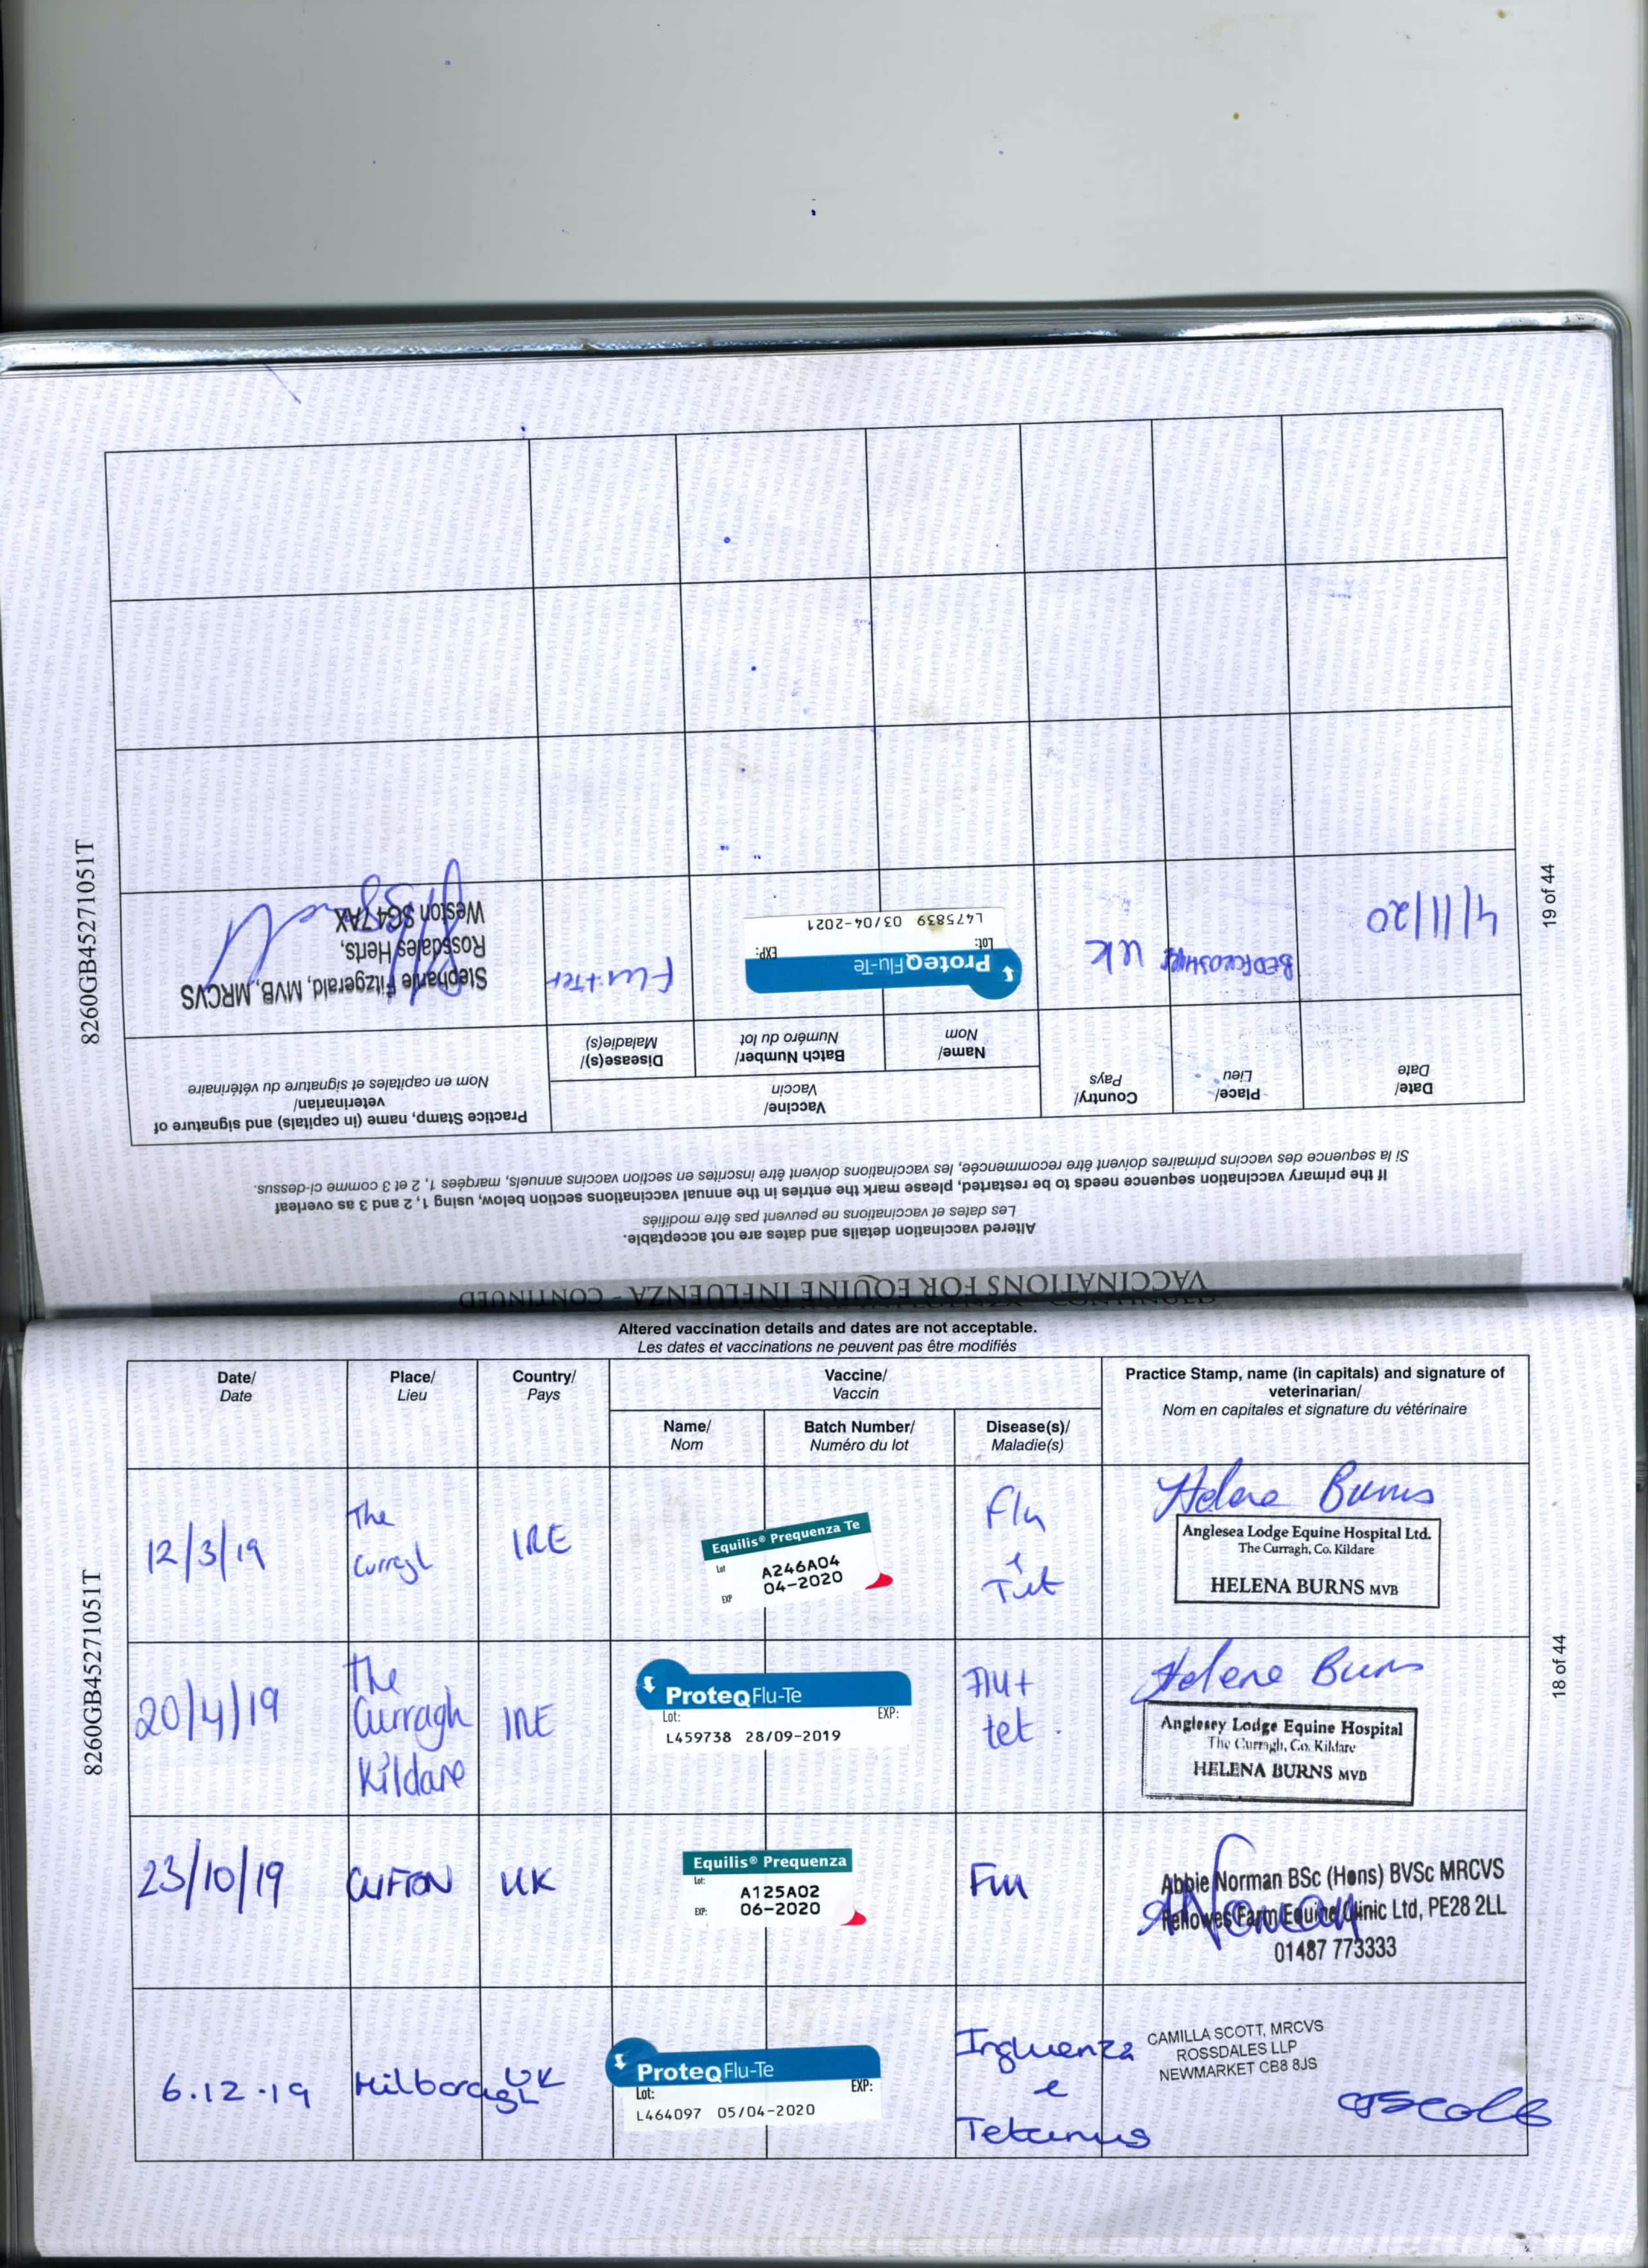 8260GB45271051T
18 of 44
Altered vaccination details and dates are not acceptable.
Les dates et vaccinations ne peuvent pas être modifiés
Date/
Date
Place/
Lieu
Country/
Pays
Vaccine/
Vaccin
Name/
Nom
Batch Number/
Numéro du lot
Disease(s)/
Maladie(s)
Practice Stamp, name (in capitals) and signature of
veterinarian/
Nom en capitales et signature du vétérinaire
12/3/19
The
IRE
Equilis® Prequenza Te
Lot
A246A04
EXP
04-2020
Flu
&
Tet
Helena Burns
Anglesea Lodge Equine Hospital Ltd.
The Curragh, Co. Kildare
HELENA BURNS MVB
20/4/19
The
Curragh
Kildare
IRE
ProteqFlu-Te
Lot:
EXP:
L459738 28/09-2019
Flu+
tet.
Helena Burns
Anglesey Lodge Equine Hospital
The Curragh, Co. Kildare
HELENA BURNS MVB
23/10/19
CLIFTON
UK
Equilis® Prequenza
Lot:
A125A02
EXP:
06-2020
Flu
Abbie Norman BSc (Hons) BVSc MRCVS
Fellowes Farm Equine Clinic Ltd, PE28 2LL
01487 773333
ANorman
6.12.19
UK
ProteqFlu-Te
Lot:
EXP:
L464097 05/04-2020
Influenza
e
Tetanus
CAMILLA SCOTT, MRCVS
ROSSDALES LLP
NEWMARKET CB8 8JS
VACCINATIONS FOR EQUINE INFLUENZA - CONTINUED
Altered vaccination details and dates are not acceptable.
Les dates et vaccinations ne peuvent pas être modifiés
If the primary vaccination sequence needs to be restarted, please mark the entries in the annual vaccinations section below, using 1, 2 and 3 as overleaf
Si la sequence des vaccins primaires doivent être recommencée, les vaccinations doivent être inscrites en section vaccins annuels, marqées 1, 2 et 3 comme ci-dessus.
Date/
Date
Place/
Lieu
Country/
Pays
Vaccine/
Vaccin
Name/
Nom
Batch Number/
Numéro du lot
Disease(s)/
Maladie(s)
Practice Stamp, name (in capitals) and signature of
veterinarian/
Nom en capitales et signature du vétérinaire
4/11/20
BEDFORDSHIRE
UK
ProteqFlu-Te
Lot:
EXP:
L475839 03/04-2021
Flu+Tet
Stephanie Fitzgerald, MVB, MRCVS
Rossdales Herts,
Weston SG47AX
19 of 44
8260GB45271051T